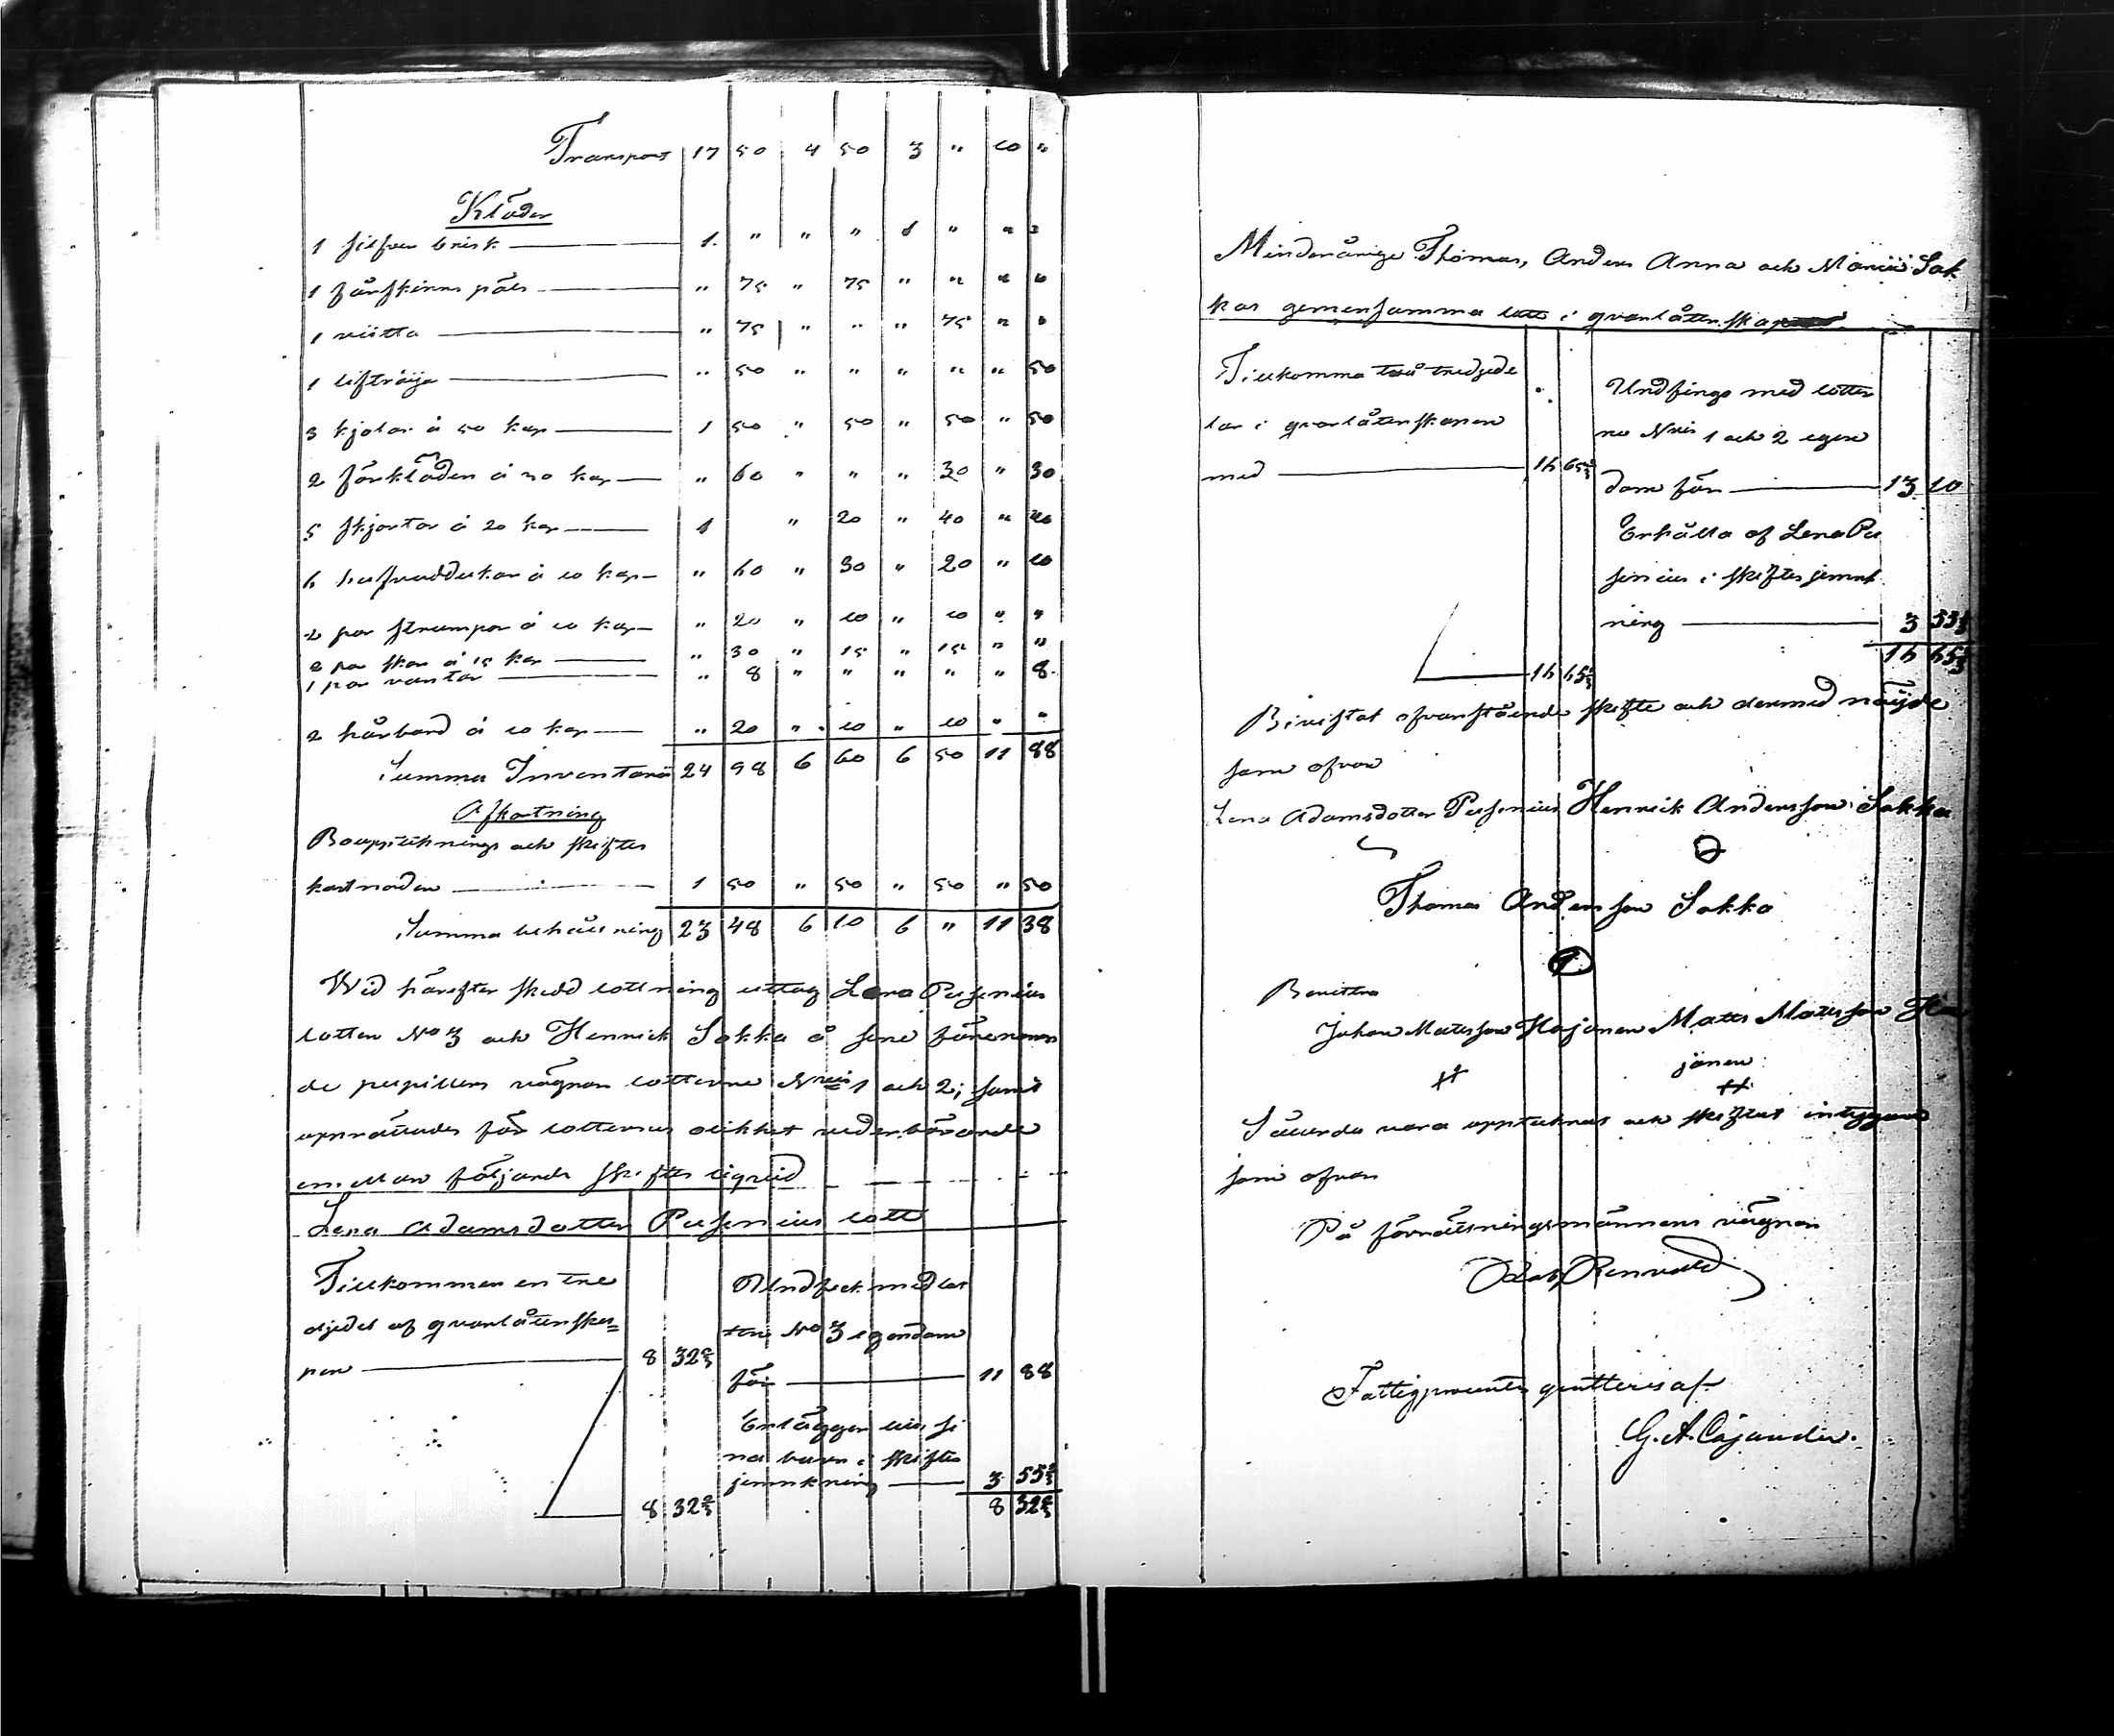 Transport 17 50 4 50 3 " 10 "
Kläder
1 silfver brisk 1 " " " 1 " " "
1 fårskinns päls " 75 " 75 " " " "
1 viitta " 75 " " " 75 " "
1 liftröija " 50 " " " " " 50
3 kjolar á 50 kop 1 50 " 50 " 50 " 50
2 förkläden á 30 kop " 60 " " " 30 " 30
5 skjortor á 20 kop 1 " 20 " 40 " 40
6 hufvuddukar á 10 kop " 60 " 30 " 20 " 10
2 par strumpor á 10 kop " 20 " 10 " 10 " "
2 par skor á 15 kop " 30 " 15 " 15 " "
1 par vantar " 8 " " " " " 8
2 hårband á 10 kop " 20 " 10 " 10 " "
Summa Inventarii 24 98 6 60 6 50 11 88
Afkortning
Bouppteknings och skiftes
kostnaden 1 50 " 50 " 50 " 50
Summa behållning 23 48 6 10 6 " 11 38
Wid härefter skedd lottning uttog Lena Pusenius
lotten No 3 och Henrick Sakka å sine förenämn
de pupillers vägnar lotterne Nris 1 och 2; samt
upprättades för lotternas olikhet vederbörande
emellan följande skiftes liqvid
Lena Adamsdotter Pusenius lott
Tillkommer en tre
djedel af qvarlåtenska=
pen 8 32 2/3
8 32 2/3
Undfick med lot
ten No 3 egendom
för 11 88
Erlägger till si
na barn i skiftes
jemnkning 3 55 1/3
8 32 2/3
Minderårige Thomas, Anders Anna och Maria Sak
kas gemensamma lott i qvarlåtenskapen
Tillkomma två tredjede
lar i qvarlåtenskapen
med 16 65 1/3
16 65 1/3
Undfingo med lotter
ne Nris 1 och 2 egen
dom för 13 10
Erhålla af Lena Pu
senius i skiftes jemnk
ning 3 55 1/3
16 65 1/3
Bivistat ofvanstående skifte och dermed nöijde
som ofvan
Lena Adamsdotter Pusenius Henrick Andersson Sakka
Thomas Andersson Sakka
Bevittna
Johan Matsson Hajanen Matts Matsson Ha
janen
Sålunda vara upptecknat och skiftat intygar
som ofvan
På förrättningsmännens vägnar
Renvald
Fattigprocenten qvitteras af
G. A. Cajander.